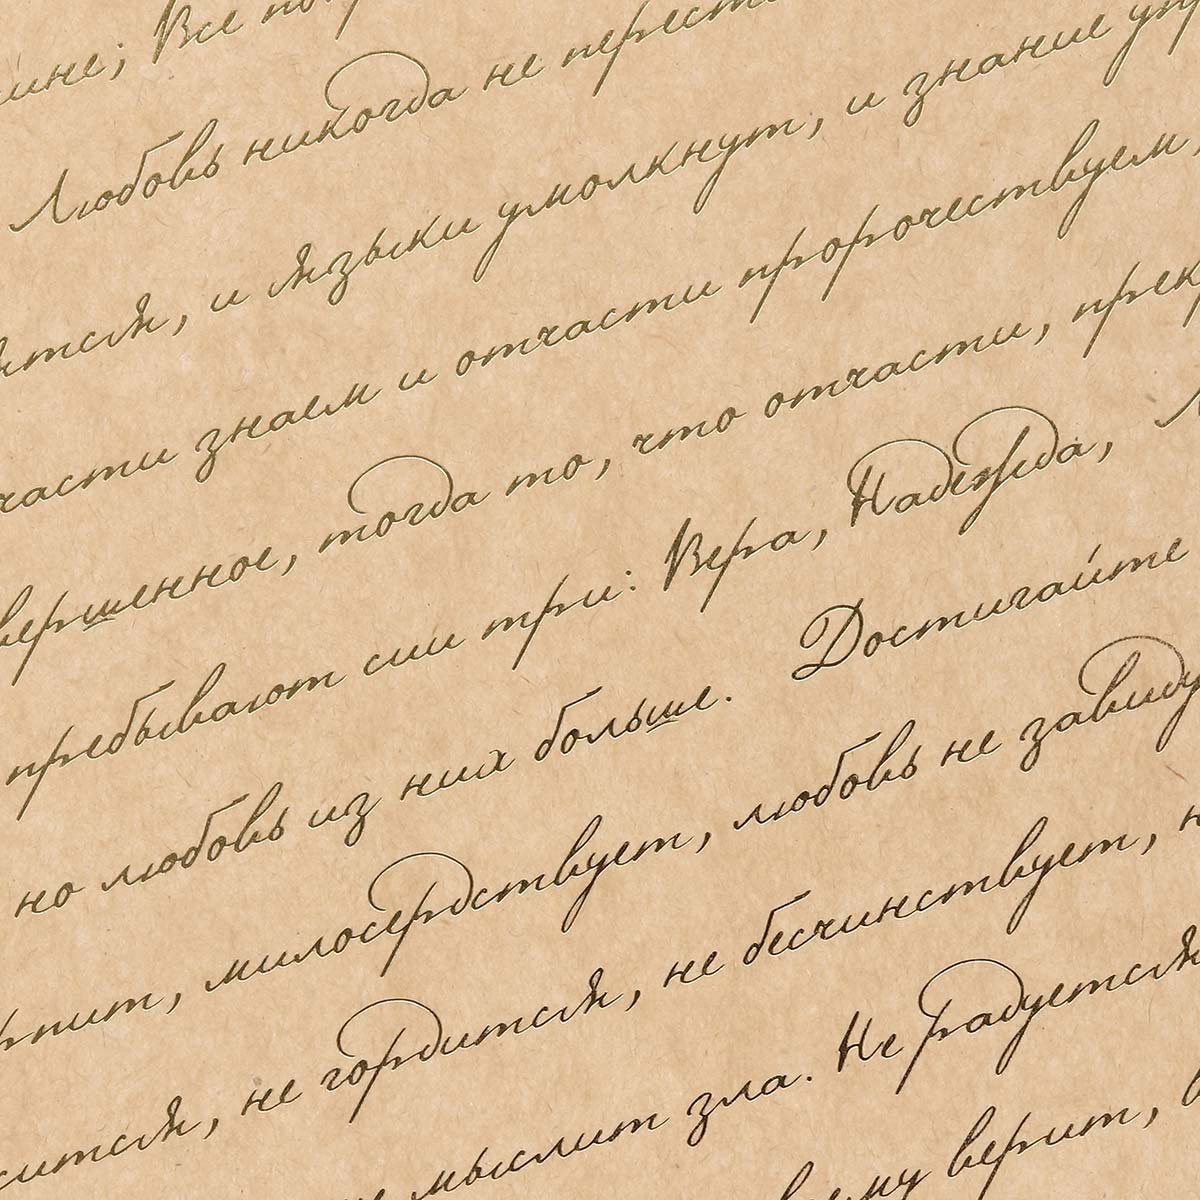 Все
Любовь никогда не
и языки умолкнут, и знание
знаем и отчасти пророчествуем,
тогда то, что отчасти,
пребывают сии три: Вера, Надежда,
но любовь из них больше. Достигайте
милосердствует, любовь не
не гордится, не бесчинствует,
мыслит зла. Не радуется
верит,